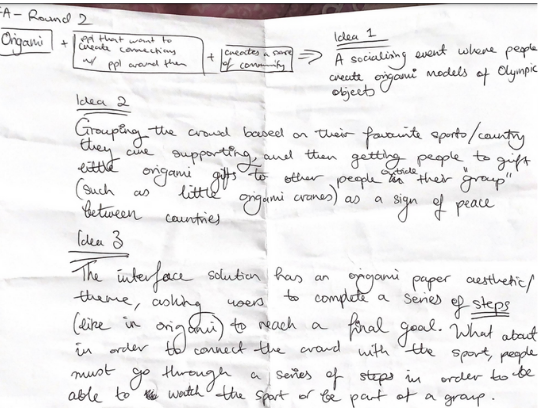 FA - Round 2
Origami + ppl that want to create connections w/ ppl around them + creates a sense of community ⇒
Idea 1
A socialising event where people
create origami models of Olympic
object
Idea 2
Grouping the crowd based on their favourite sports/country
they are supporting, and then getting people to gift
little origami gifts to other people outside their "group"
(such as little origami cranes) as a sign of peace
between countries
Idea 3
The interface solution has an origami paper aesthetic/
theme, asking users to complete a series of steps
(like in origami) to reach a final goal. What about
in order to connect the crowd with the sport, people
must go through a series of steps in order to be
able to watch the sport or be part of a group.